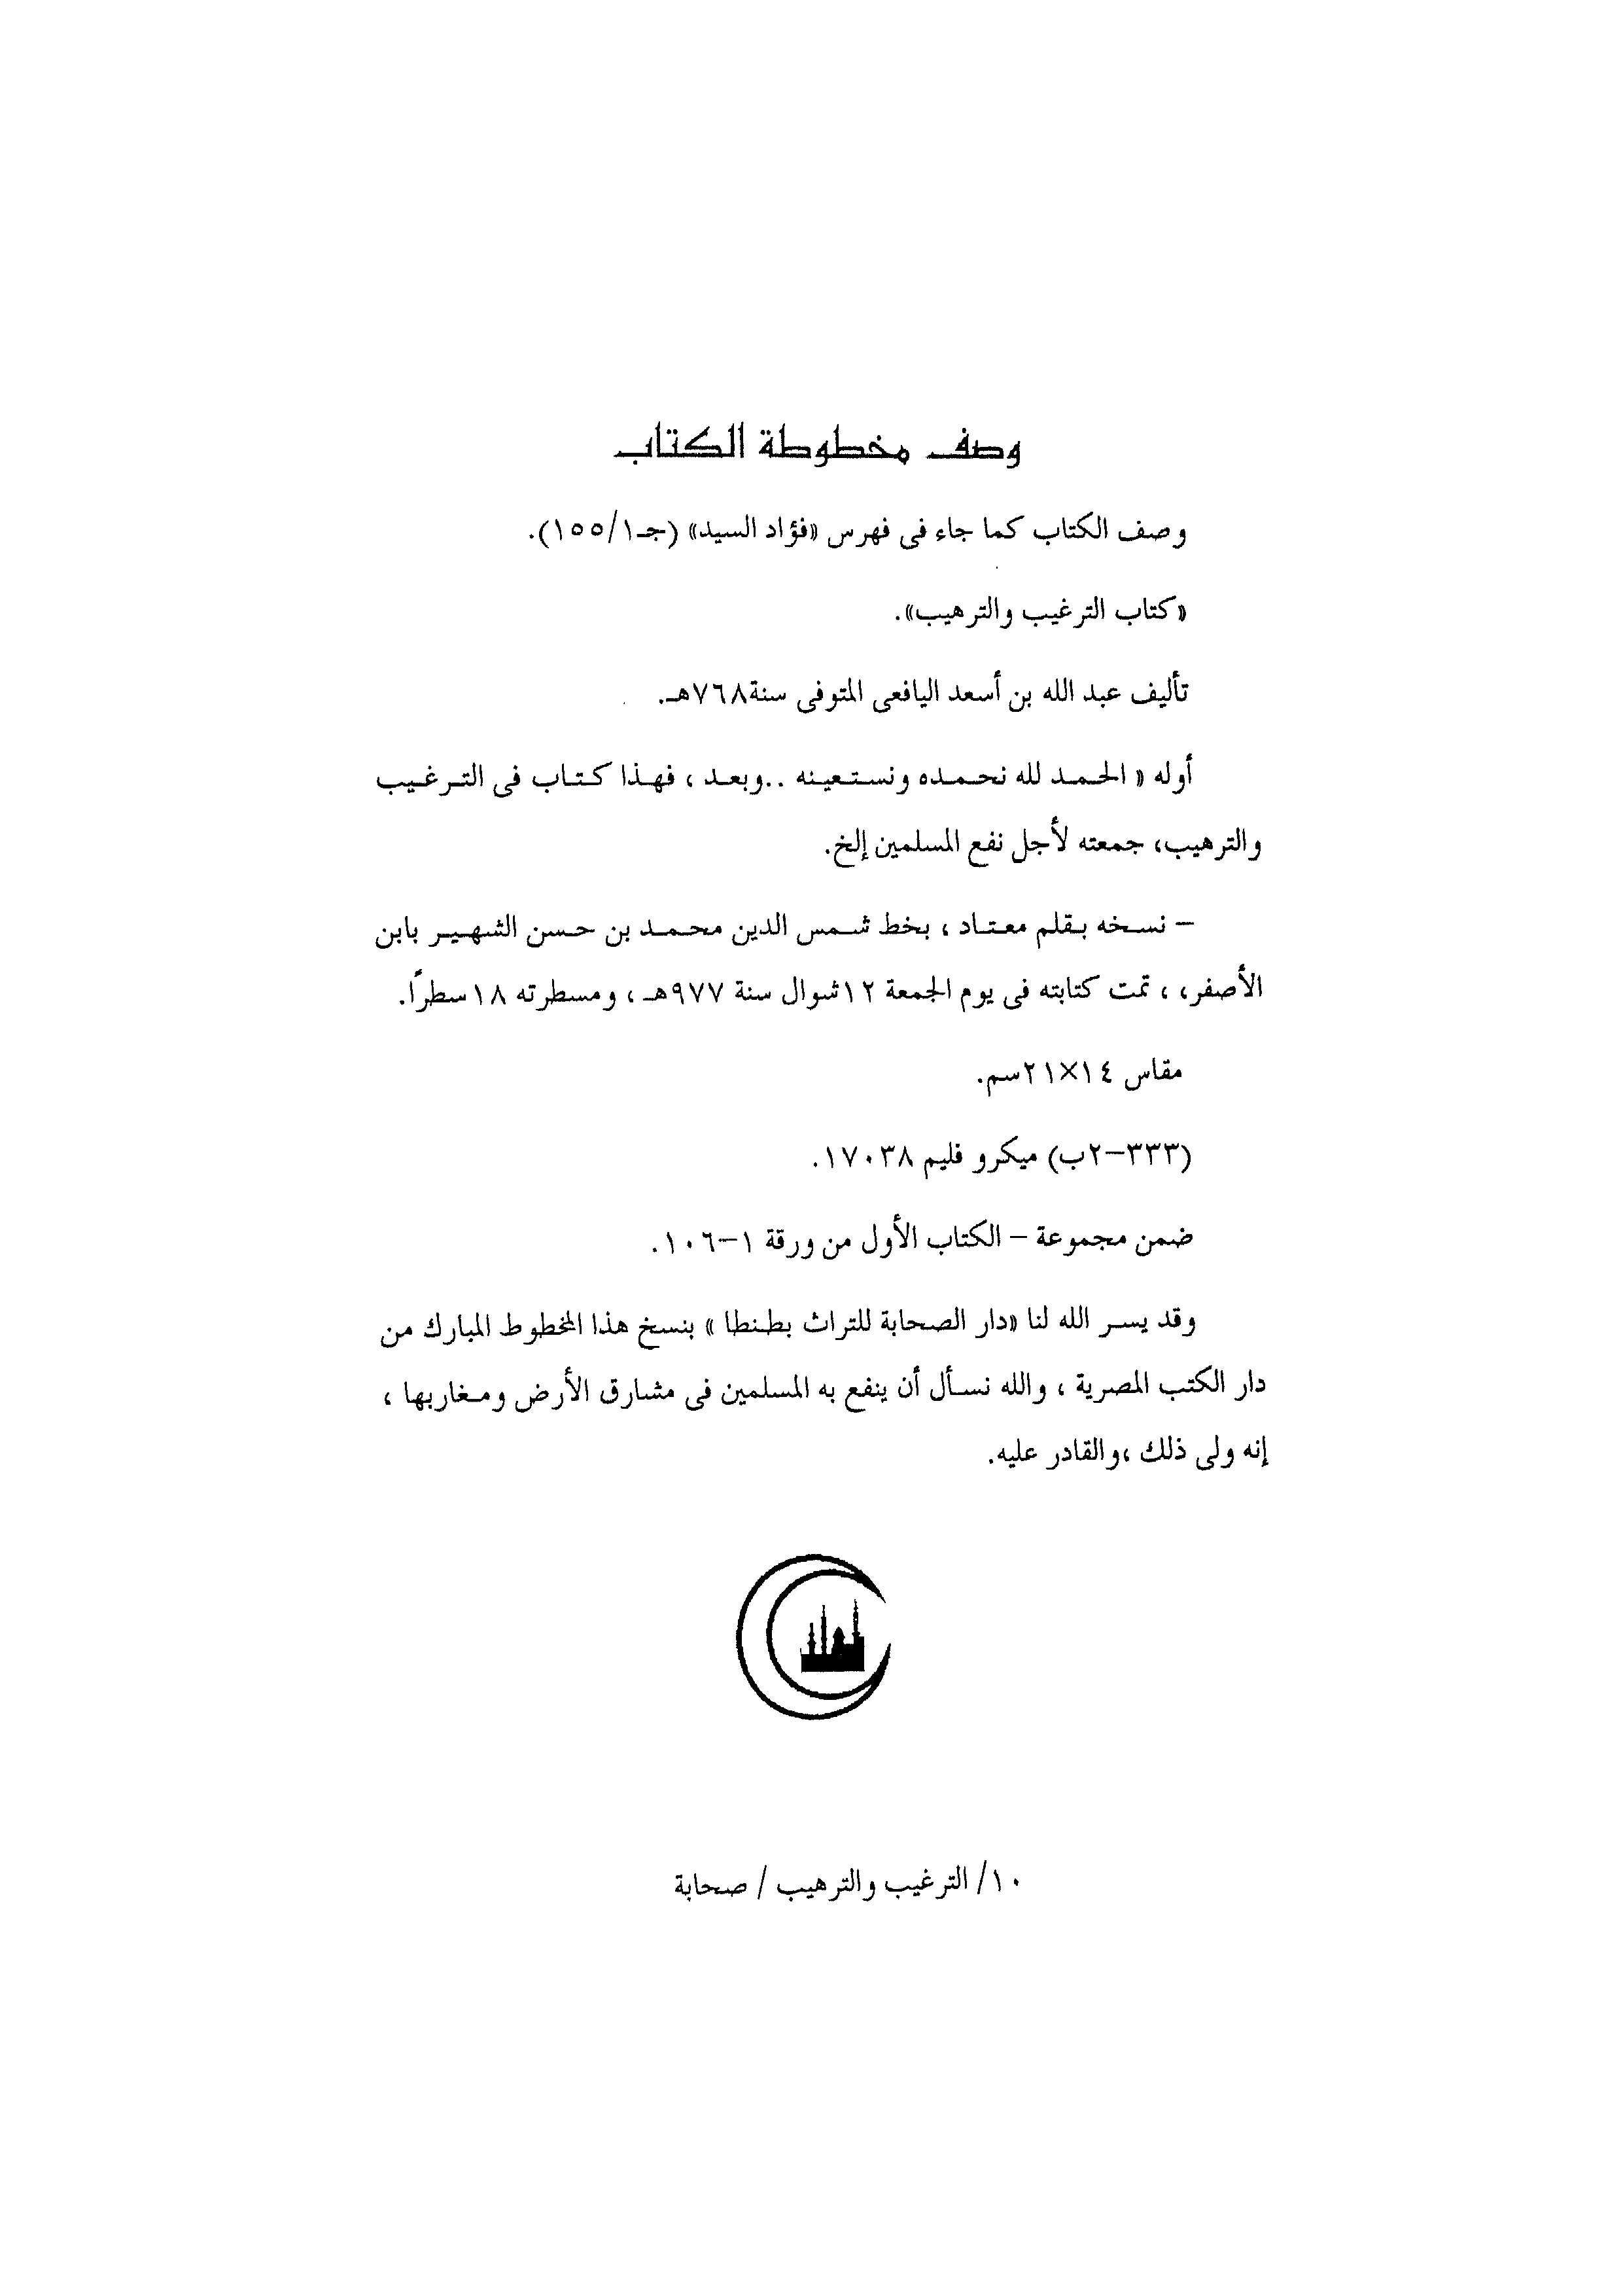 وصف مخطوطة الكتاب
وصف الكتاب كما جاء فى فهرس «فؤاد السيد» (جـ١/١٥٥).
«كتاب الترغيب والترهيب».
تأليف عبد الله بن أسعد اليافعى المتوفى سنة٧٦٨هـ.
أوله « الحمد لله نحمده ونستعينه ..وبعد ، فهذا كتاب فى الترغيب
والترهيب، جمعته لأجل نفع المسلمين إلخ.
– نسخه بقلم معتاد ، بخط شمس الدين محمد بن حسن الشهير بابن
الأصفر، ، تمت كتابته فى يوم الجمعة ١٢شوال سنة ٩٧٧هـ ، ومسطرته ١٨سطرًا.
مقاس ١٤×٢١سم.
(٣٣٣–٢ب) ميكرو فليم ١٧٠٣٨.
ضمن مجموعة – الكتاب الأول من ورقة ١–١٠٦.
وقد يسر الله لنا «دار الصحابة للتراث بطنطا » بنسخ هذا المخطوط المبارك من
دار الكتب المصرية ، والله نسأل أن ينفع به المسلمين فى مشارق الأرض ومغاربها ،
إنه ولى ذلك ،والقادر عليه.
١٠/ الترغيب والترهيب / صحابة